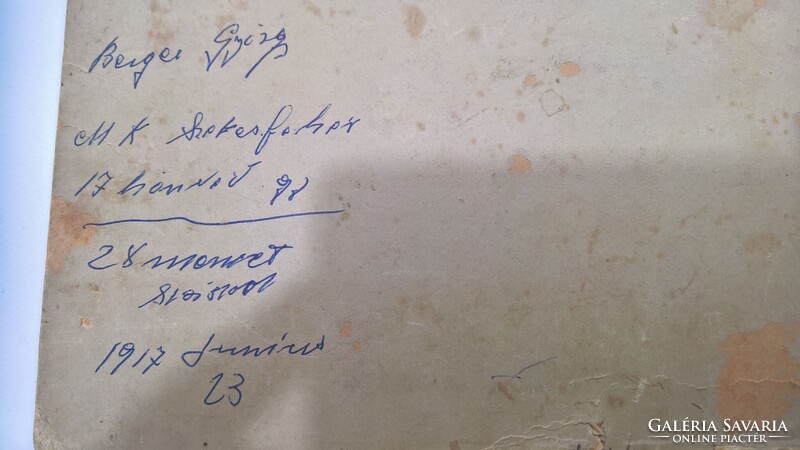 Berger György
M K Szekesfeher
17 honved gy
28 menet
század
1917 Junius
23
GALÉRIA SAVARIA
ONLINE PIACTÉR